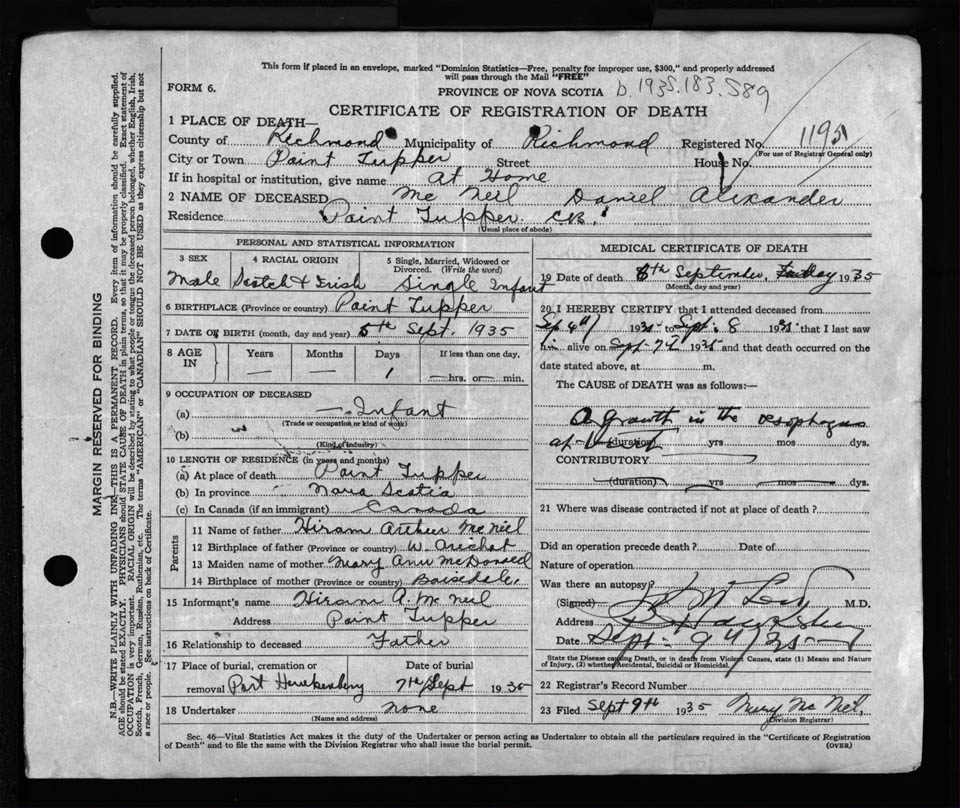 This form if placed in an envelope, marked "Dominion Statistics—Free, penalty for improper use, $300," and properly addressed
will pass through the Mail "FREE"
FORM 6.
PROVINCE OF NOVA SCOTIA b.1935.183.589
CERTIFICATE OF REGISTRATION OF DEATH
1 PLACE OF DEATH—
County of Richmond Municipality of Richmond Registered No. 1195
(For use of Registrar General only)
City or Town Point Tupper Street House No.
If in hospital or institution, give name at Home
2 NAME OF DECEASED Mc Neil Daniel Alexander
Residence Point Tupper CB.
(Usual place of abode)
PERSONAL AND STATISTICAL INFORMATION
3 SEX 4 RACIAL ORIGIN 5 Single, Married, Widowed or Divorced. (Write the word)
Male Scotch & Irish Single Infant
6 BIRTHPLACE (Province or country) Point Tupper
7 DATE OF BIRTH (month, day and year) 5th Sept. 1935
8 AGE IN Years Months Days If less than one day,
— — 1 — hrs. or — min.
9 OCCUPATION OF DECEASED
(a) — Infant
(Trade or occupation or kind of work)
(b)
(Kind of industry)
10 LENGTH OF RESIDENCE (in years and months)
(a) At place of death Point Tupper
(b) In province Nova Scotia
(c) In Canada (if an immigrant) Canada
Parents
11 Name of father Hiram Arthur Mc Neil
12 Birthplace of father (Province or country) W. Arichat
13 Maiden name of mother Mary Ann McDonald
14 Birthplace of mother (Province or country) Boisdale.
15 Informant's name Hiram A. Mc Neil
Address Point Tupper
16 Relationship to deceased Father
17 Place of burial, cremation or removal Port Date of burial 7th Sept 1935
18 Undertaker none
(Name and address)
MEDICAL CERTIFICATE OF DEATH
19 Date of death 6th September, 1935
(Month, day and year)
20 I HEREBY CERTIFY that I attended deceased from
Sep 4th 1935 to Sept. 8 1935 that I last saw
him alive on Sept. 7th 1935 and that death occurred on the
date stated above, at m.
The CAUSE OF DEATH was as follows:—
A growth in the esophagus
(duration) yrs. mos. dys.
CONTRIBUTORY
(duration) yrs. mos. dys.
21 Where was disease contracted if not at place of death?
Did an operation precede death? Date of
Nature of operation
Was there an autopsy?
(Signed) M.D.
Address
Date Sept. 9th/35
State the Disease causing Death, or in death from Violent Causes, state (1) Means and Nature
of Injury, (2) whether Accidental, Suicidal or Homicidal.
22 Registrar's Record Number
23 Filed Sept 9th 1935 Mc Neil,
(Division Registrar)
Sec. 46—Vital Statistics Act makes it the duty of the Undertaker or person acting as Undertaker to obtain all the particulars required in the "Certificate of Registration
of Death" and to file the same with the Division Registrar who shall issue the burial permit. (OVER)
MARGIN RESERVED FOR BINDING
N.B.—WRITE PLAINLY WITH UNFADING INK—THIS IS A PERMANENT RECORD. Every item of information should be carefully supplied.
AGE should be stated EXACTLY. PHYSICIANS should STATE CAUSE OF DEATH in plain terms, so that it may be properly classified. Exact statement of
OCCUPATION is very important. RACIAL ORIGIN will be described by stating to what people or tongue the deceased person belonged, whether English, Irish,
Scotch, French, German, Russian, Ruthenian, etc. The terms "AMERICAN" or "CANADIAN" SHOULD NOT BE USED as they express citizenship but not
a race or people. See instructions on back of Certificate.